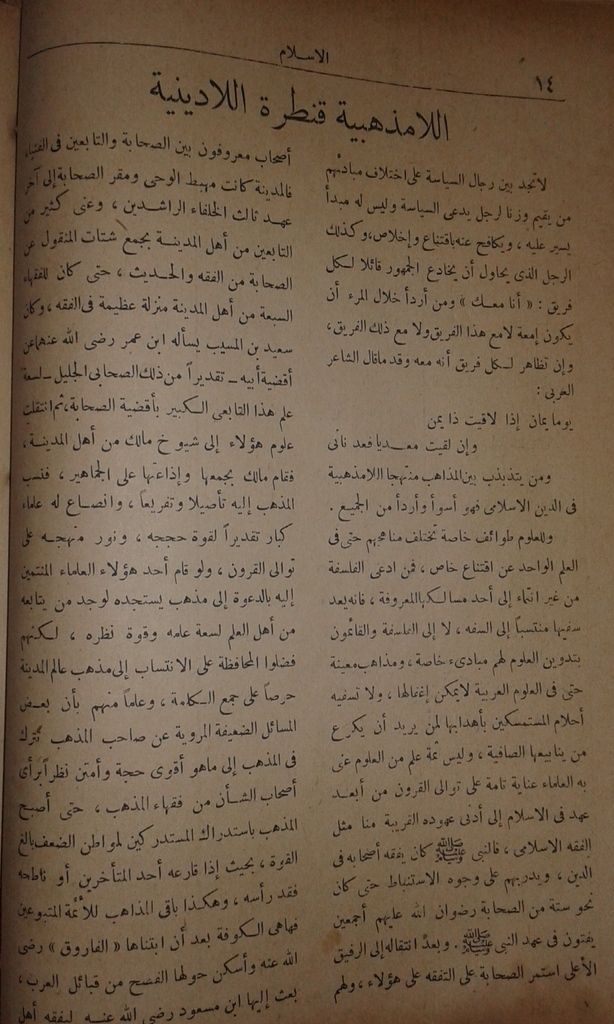 الاسلام
١٤
اللامذهبية قنطرة اللادينية
لا تجد بين رجال السياسة على اختلاف مبادئهم
من يقيم وزنا لرجل يدعى السياسة وليس له مبدأ
يسير عليه ، ويكافح عنه باقتناع وإخلاص، وكذلك
الرجل الذى يحاول أن يخادع الجمهور قائلا لكل
فريق : « أنا معك » ومن أردأ خلال المرء أن
يكون إمعة لامع هذا الفريق ولا مع ذلك الفريق،
وإن تظاهر لكل فريق أنه معه وقد ماقال الشاعر
العربى :
يوما يمان إذا لاقيت ذا يمن
وإن لقيت معديا فعدنانى
ومن يتذبذب بين المذاهب منتهجا اللامذهبية
فى الدين الاسلامى فهو أسوأ وأردأ من الجميع .
وللعلوم طوائف خاصة تختلف مناهجهم حتى فى
العلم الواحد عن اقتناع خاص ، فمن ادعى الفلسفة
من غير انتماء إلى أحد مسالكها المعروفة ، فانه يعد
سفيها منتسباً إلى السفه ، لا إلى الفلسفة والقائمون
بتدوين العلوم لهم مبادىء خاصة ، ومذاهب معينة
حتى فى العلوم العربية لا يمكن إغفالها ، ولا تسفيه
أحلام المستمسكين بأهدابها لمن يريد أن يكرع
من ينابيعها الصافية ، وليس ثمة علم من العلوم عنى
به العلماء عناية تامة على توالى القرون من أبعد
عهد فى الاسلام إلى أدنى عهوده القريبة منا مثل
الفقه الاسلامى ، فالنبى ﷺ كان يفقه أصحابه فى
الدين ، ويدربهم على وجوه الاستنباط حتى كان
نحو ستة من الصحابة رضوان الله عليهم أجمعين
يفتون فى عهد النبى ﷺ . وبعد انتقاله إلى الرفيق
الأعلى استمر الصحابة على التفقه على هؤلاء ، ولهم
أصحاب معروفون بين الصحابة والتابعين فى الفتيا،
فالمدينة كانت مهبط الوحى ومقر الصحابة إلى آخر
عهد ثالث الخلفاء الراشدين ، وعنى كثير من
التابعين من أهل المدينة بجمع شتات المنقول عن
الصحابة من الفقه والحديث ، حتى كان للفقهاء
السبعة من أهل المدينة منزلة عظيمة فى الفقه ، وكان
سعيد بن المسيب يسأله ابن عمر رضى الله عنهما عن
أقضية أبيه ـ تقديراً من ذلك الصحابى الجليل ـ لسعة
علم هذا التابعى الكبير بأقضية الصحابة، ثم انتقلت
علوم هؤلاء إلى شيوخ مالك من أهل المدينة ،
فقام مالك بجمعها وإذاعتها على الجماهير ، فنسب
المذهب إليه تأصيلا وتفريعاً ، وانصاع له علماء
كبار تقديراً لقوة حججه ، ونور منهجه على
توالى القرون ، ولو قام أحد هؤلاء العلماء المنتمين
إليه بالدعوة إلى مذهب يستجده لوجد من يتابعه
من أهل العلم لسعة علمه وقوة نظره ، لكنهم
فضلوا المحافظة على الانتساب إلى مذهب عالم المدينة
حرصاً على جمع الكلمة ، وعلماً منهم بأن بعض
المسائل الضعيفة المروية عن صاحب المذهب تترك
فى المذهب إلى ماهو أقوى حجة وأمتن نظراً برأى
أصحاب الشأن من فقهاء المذهب ، حتى أصبح
المذهب باستدراك المستدركين لمواطن الضعف بالغ
القوة ، بحيث إذا قارعه أحد المتأخرين أو ناطحه
فقد رأسه ، وهكذا باقى المذاهب للأئمة المتبوعين
فهاهى الكوفة بعد أن ابتناها « الفاروق » رضى
الله عنه وأسكن حولها الفصح من قبائل العرب،
بعث إليها ابن مسعود رضى الله عنه ليفقه أهل